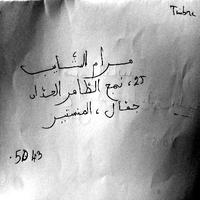 Timbre
مرام الشايب
25، نهج الطاهر الحداد
جمال، المنستير
5043